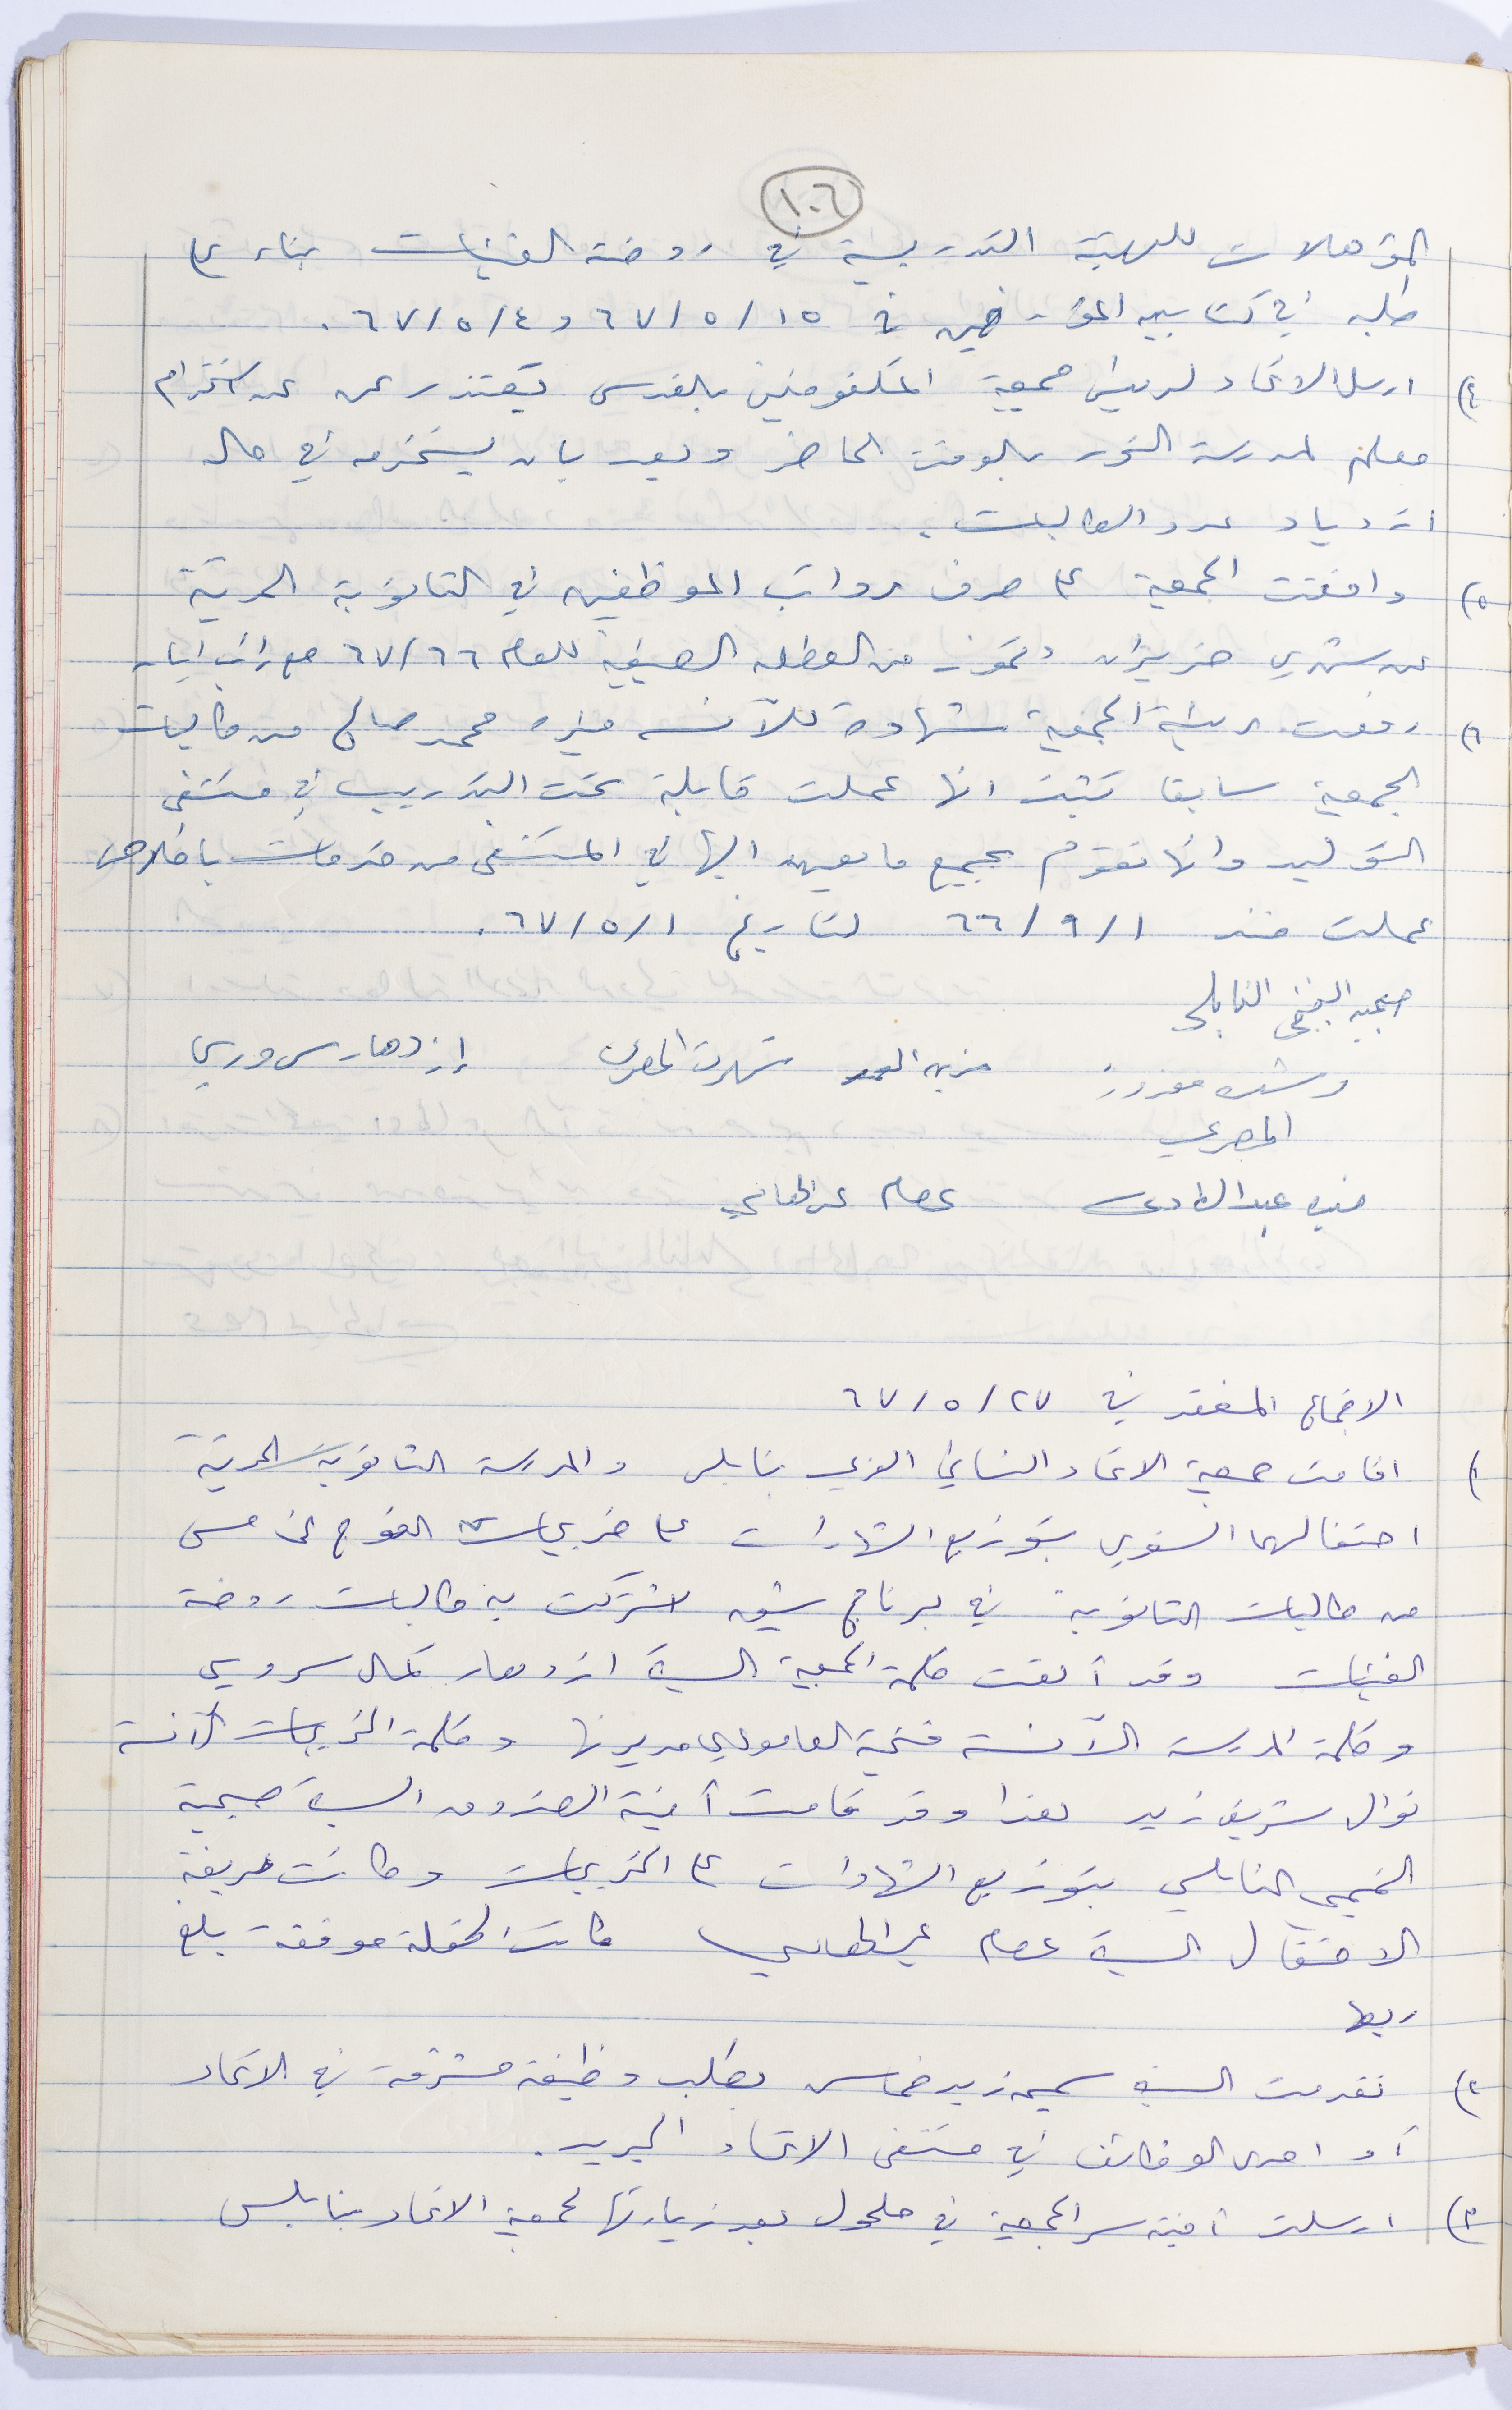 ١٠٦
المؤهلات للهيئة التدريسية في روضة الفتيات بناء على
طلبه في كتابيه المؤرخين في ١٥/٥/٦٧ و ٤/٥/٦٧.
٤) ارسل الاتحاد لرئيس جمعية المكفوفين بالقدس يعتذر عن عن استخدام
معلم لمدرسة النور بالوقت الحاضر ويعد بان يستخدمه في حال
ازدياد عدد الطالبات.
٥) وافقت الجمعية على صرف رواتب الموظفين في الثانوية العربية
عن شهري حزيران وتموز من العطله الصيفية للعام ٦٦/٦٧ مع راتب ايار
٦) رفعت رئيسة الجمعية شهادة للآنسه محمد صالح من طالبات
الجمعية سابقا تثبت انها عملت قابلة تحت التدريب في مستشفى
التوليد وانها تقوم بجميع ما يعهد اليها في المستشفى من خدمات باخلاص
عملت منذ ١/٩/٦٦ لتاريخ ١/٥/٦٧.
النابلسي
المصري إزدهار سروري
المصري
عبد الهادي عصام عبد الهادي
الاجتماع المنعقد في ٢٧/٥/٦٧
١) اقامت جمعية الاتحاد النسائي العربي بنابلس والمدرسة الثانوية العربية
احتفالهما السنوي بتوزيع الشهادات على خريجات الفوج الخامس
من طالبات الثانوية في برنامج شيق اشتركت به طالبات روضة
الفتيات وقد ألقت كلمة الجمعية السيدة ازدهار كمال سروري
وكلمة المدرسة الآنسة فتحية العامودي مديرتها وكلمة الخريجات الآنسة
نوال شريف زيد هذا وقد قامت أمينة الصندوق السيدة صبحية
النابلسي بتوزيع الشهادات على الخريجات وكانت عريفة
الاحتفال السيدة عصام عبد الهادي كانت الحفلة موفقة بلغ
ريعها
٢) تقدمت السيدة سميه زيد خماس بطلب وظيفة مشرفة في الاتحاد
أو احدى الوظائف في مستشفى الاتحاد الجديد.
٣) ارسلت أمينة سر الجمعية في حلحول بعد زيارتها لجمعية الاتحاد بنابلس